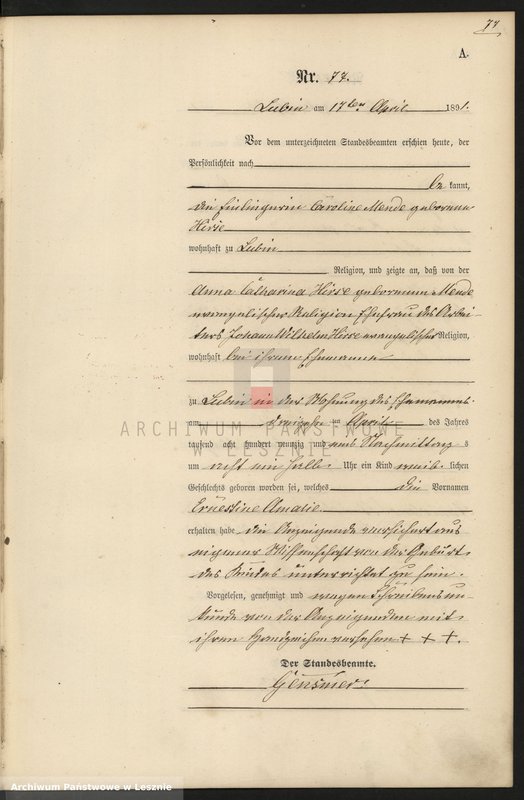 77
A.
Nr. 77.
Lubin am 17ten April 1891.
Vor dem unterzeichneten Standesbeamten erschien heute, der
Persönlichkeit nach
be kannt,
die Einliegerin Caroline Mende geborene
Hirse
wohnhaft zu Lubin
Religion, und zeigte an, daß von der
Anna Catharina Hirse geborenen Mende
evangelischer Religion Ehefrau des Arbei-
ters Johann Wilhelm Hirse evangelischer Religion,
wohnhaft bei ihrem Ehemanne
zu Lubin in der Wohnung des Ehemannes
am dreizehn ten April des Jahres
tausend acht hundert neunzig und eins Nachmittags
um acht ein halb Uhr ein Kind weib lichen
Geschlechts geboren worden sei, welches die Vornamen
Ernestine Amalie
erhalten habe die Anzeigende versichert aus
eigener Wissenschaft von der Geburt
des Kindes unterrichtet zu sein.
Vorgelesen, genehmigt und wegen Schreibensun-
kunde von der Anzeigenden mit
ihren Handzeichen versehen + + +.
Der Standesbeamte.
ARCHIWUM PAŃSTWOWE
W LESZNIE
Archiwum Państwowe w Lesznie